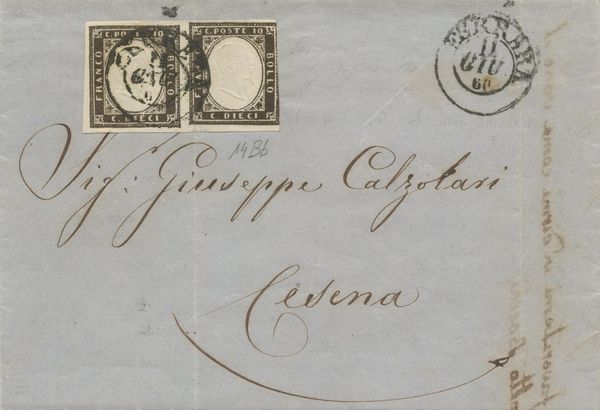 C. POSTE 10
FRANCO
BOLLO
C. DIECI
C. POSTE 10
FRANCO
BOLLO
C. DIECI
FERRARA
11
GIU
60
14Bb
Sig: Giuseppe Calzolari
Cesena